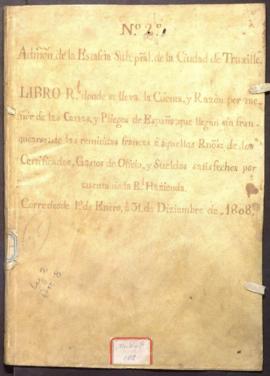 N.º 2.º
Admon. de la Estafeta Subpral. de la Ciudad de Truxillo.
LIBRO Rl. donde se lleva la Cuenta, y Razon por me-
nor de las Cartas, y Pliegos de España, que llegan sin fran-
quear, ante las remisivas francas á aquellos Rnos; de los
Certificados, Gastos de Oficio, y Sueldos satisfechos por
cuenta de la Rl. Hazienda.
Corre desde 1.º de Enero, á 31. de Diziembre de 1808.